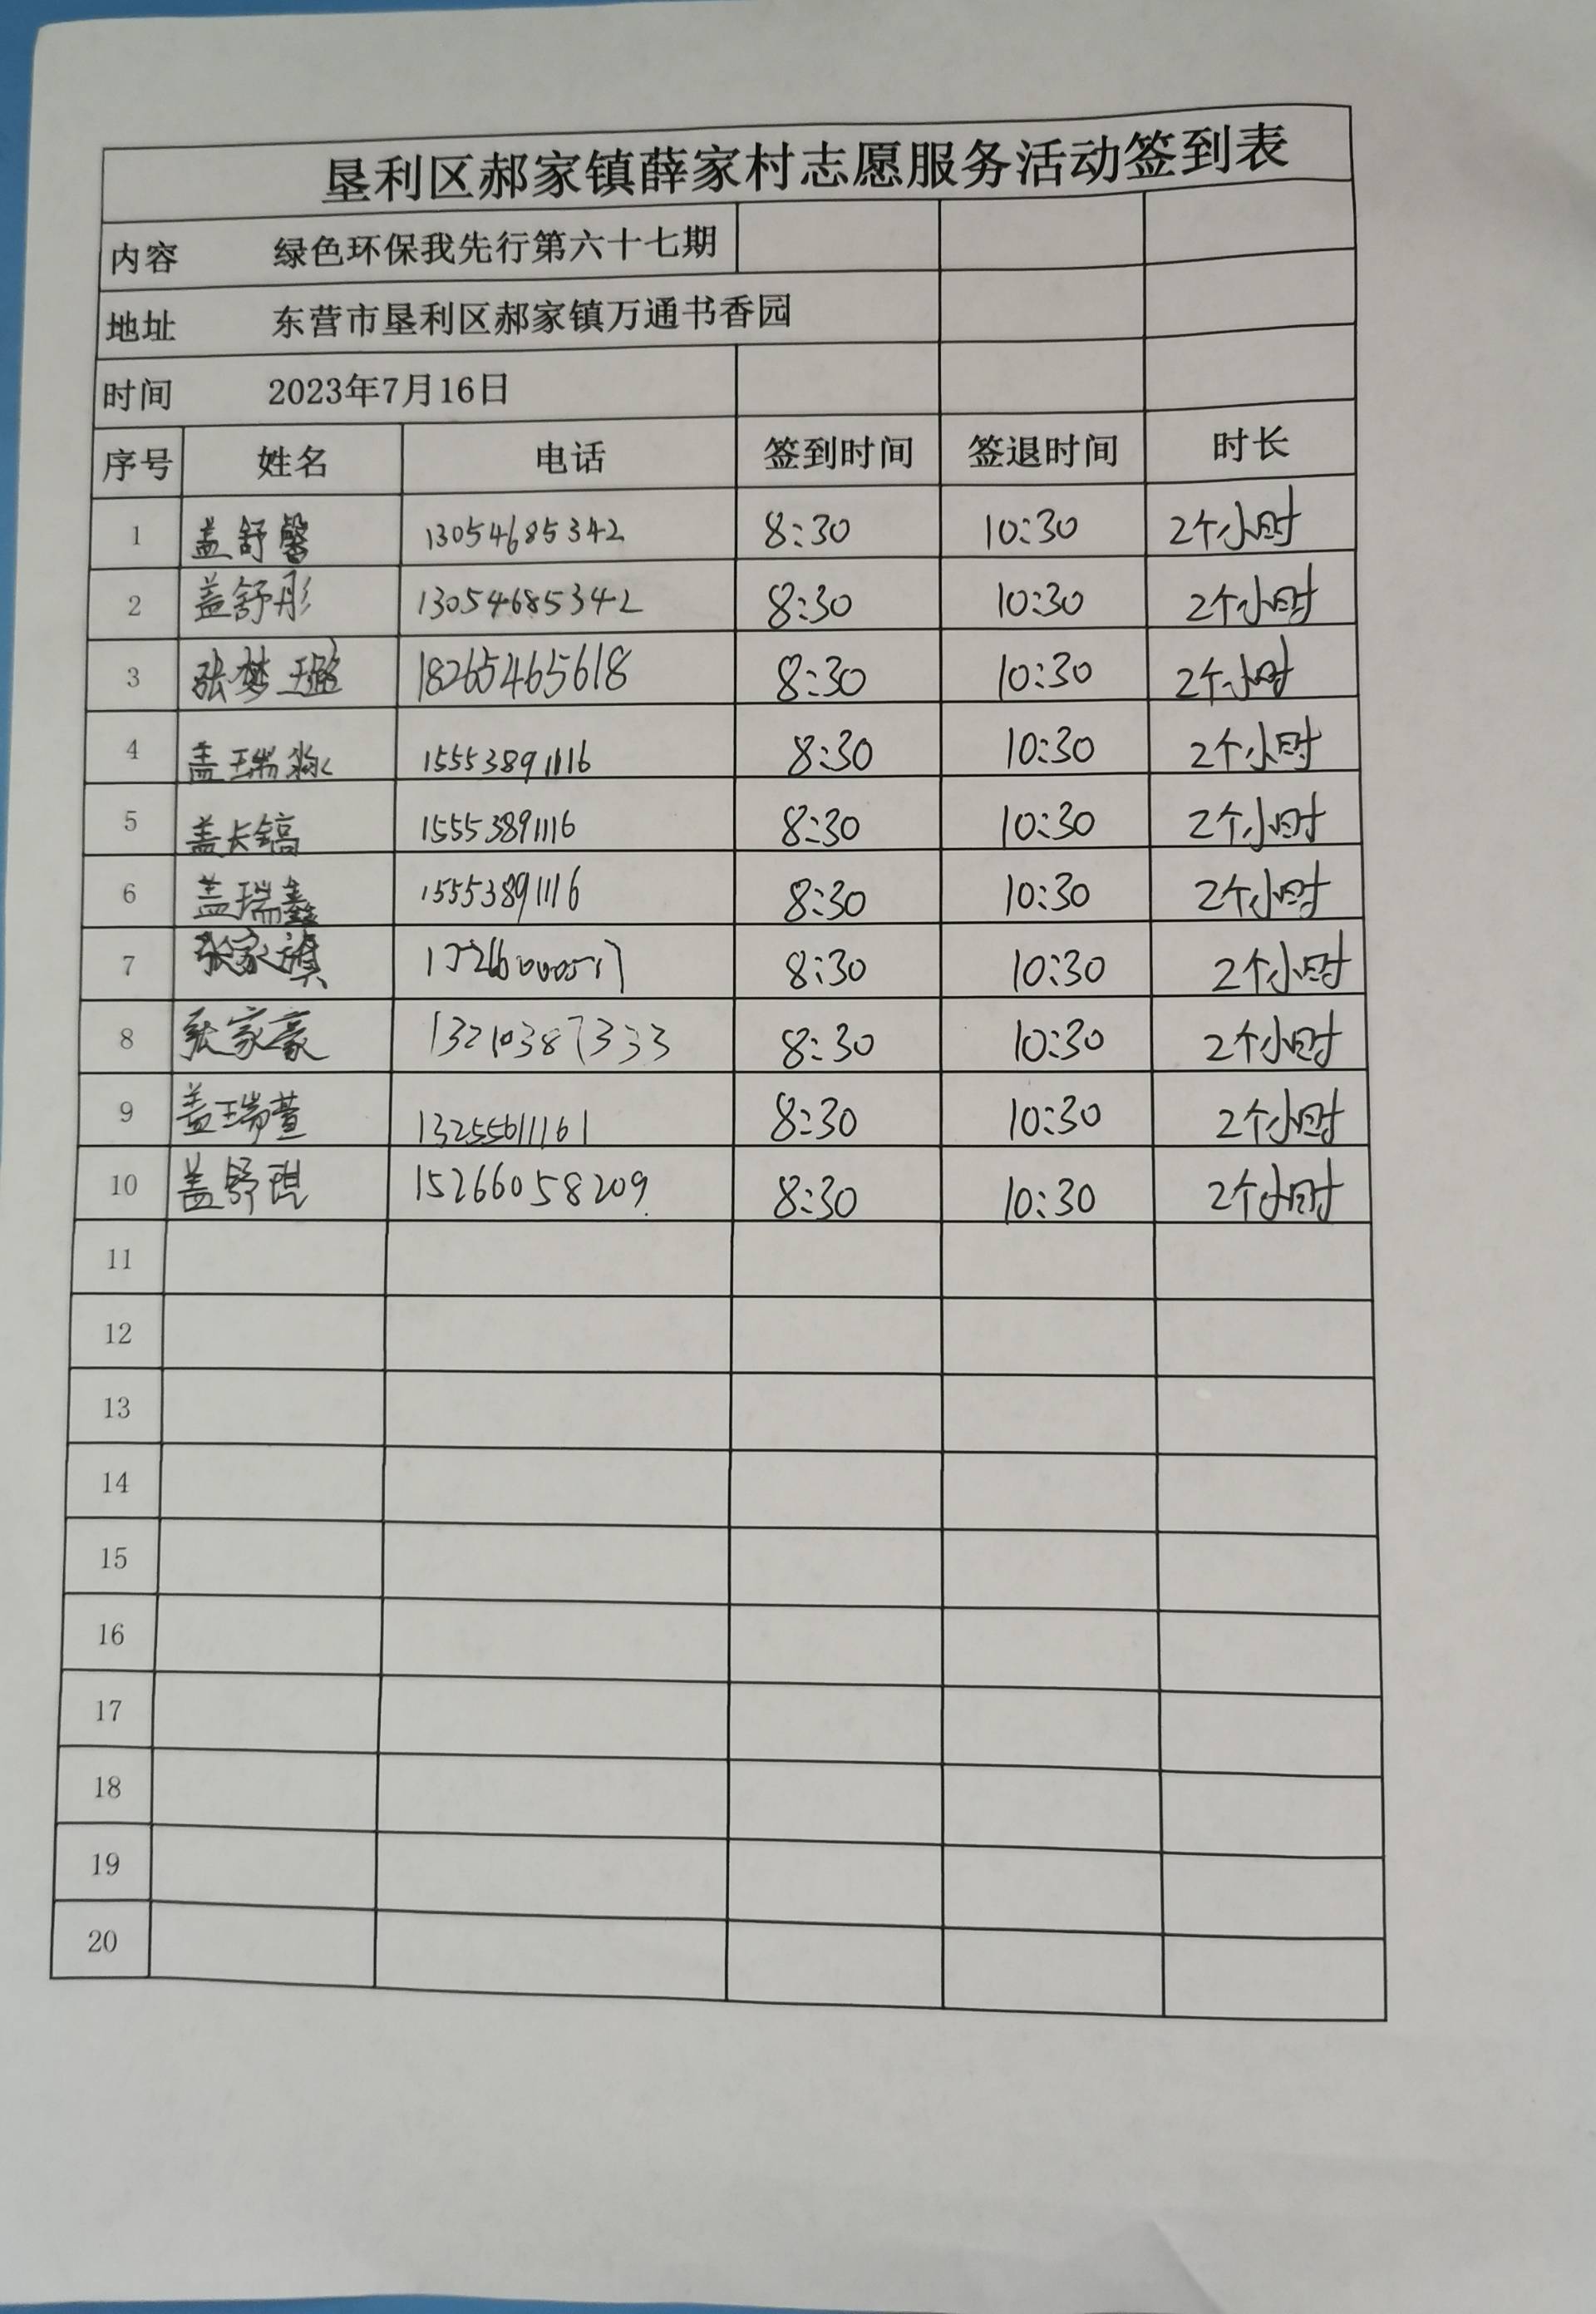 垦利区郝家镇薛家村志愿服务活动签到表
内容 绿色环保我先行第六十七期
地址 东营市垦利区郝家镇万通书香园
时间 2023年7月16日
序号 姓名 电话 签到时间 签退时间 时长
1 盖舒馨 13054685342 8:30 10:30 2个小时
2 盖舒彤 13054685342 8:30 10:30 2个小时
3 张梦璐 18265465618 8:30 10:30 2个小时
4 盖瑞淼 15553891116 8:30 10:30 2个小时
5 盖长镐 15553891116 8:30 10:30 2个小时
6 盖瑞鑫 15553891116 8:30 10:30 2个小时
7 张家旗 8:30 10:30 2个小时
8 张家豪 13210387333 8:30 10:30 2个小时
9 盖瑞萱 13255611161 8:30 10:30 2个小时
10 盖舒琨 15266058209 8:30 10:30 2个小时
11
12
13
14
15
16
17
18
19
20